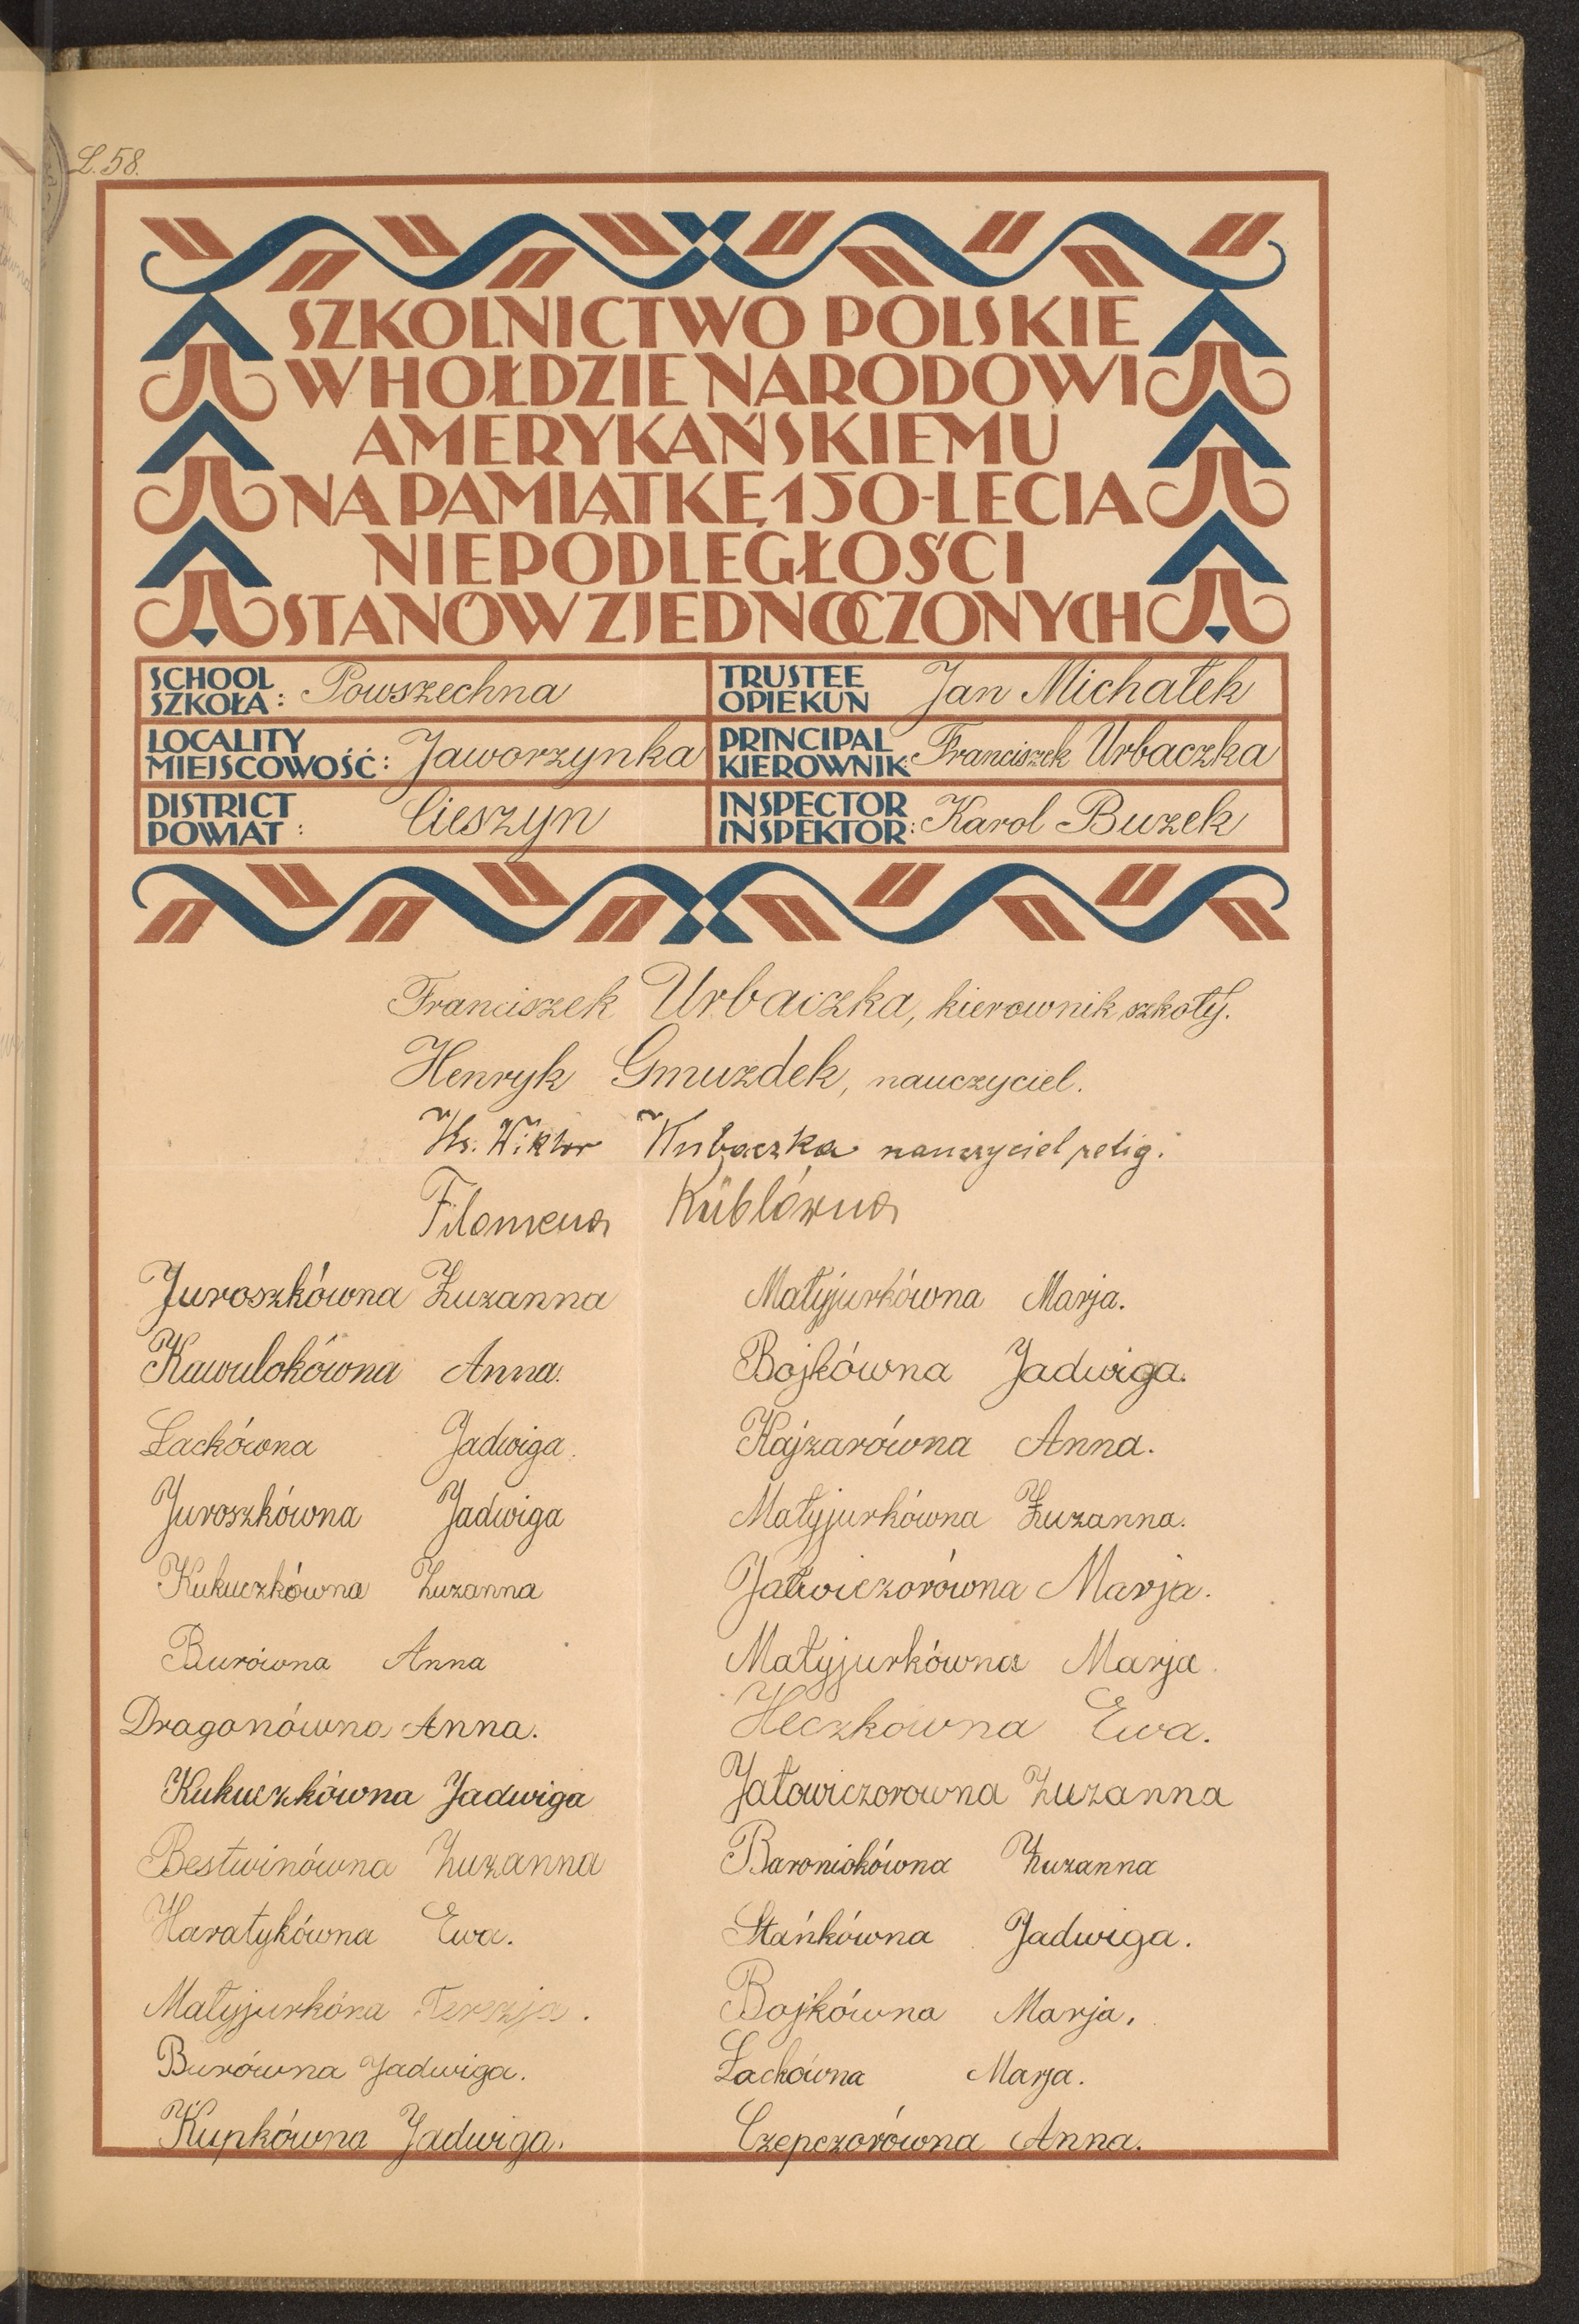 L. 58.
SZKOLNICTWO POLSKIE
W HOŁDZIE NARODOWI
AMERYKAŃSKIEMU
NA PAMIĄTKĘ 150-LECIA
NIEPODLEGŁOŚCI
STANÓW ZJEDNOCZONYCH
SCHOOL
SZKOŁA: Powszechna
TRUSTEE
OPIEKUN Jan Michałek
LOCALITY
MIEJSCOWOŚĆ: Jaworzynka
PRINCIPAL
KIEROWNIK: Franciszek Urbaczka
DISTRICT
POWIAT: Cieszyn
INSPECTOR
INSPEKTOR: Karol Buzek
Franciszek Urbaczka, kierownik szkoły.
Henryk Gmuzdek, nauczyciel.
Ks. Wiktor Kubaczka nauczyciel relig.
Filomena Küblówna
Juroszkówna Zuzanna
Kawulokówna Anna.
Łackówna Jadwiga.
Juroszkówna Jadwiga
Kukuczkówna Zuzanna
Burówna Anna
Dragonówna Anna.
Kukuczkówna Jadwiga
Bestwinówna Zuzanna
Haratykówna Ewa.
Małyjurkóna Terezja.
Burówna Jadwiga.
Kupkówna Jadwiga.
Małyjurkówna Marja.
Bojkówna Jadwiga.
Kajzarówna Anna.
Małyjurkówna Zuzanna.
Marja.
Małyjurkówna Marja.
Heczkowna Ewa.
Jałowiczorowna Zuzanna
Baroniokówna Zuzanna
Stańkówna Jadwiga.
Bojkówna Marja.
Łachówna Marja.
Czepczorówna Anna.